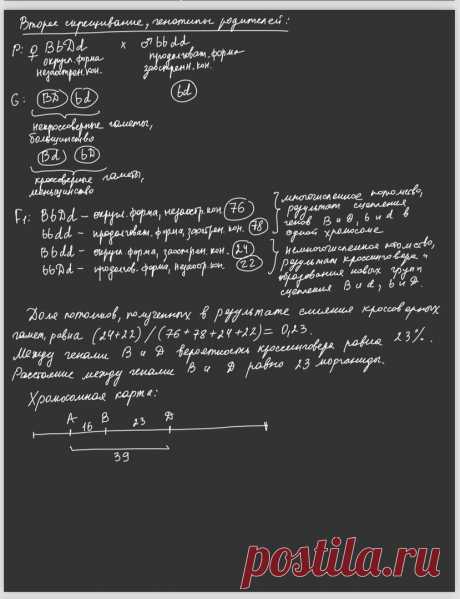 Второе скрещивание, генотипы родителей:
P: ♀ BbDd x ♂ bbdd
округл. форма продолговат. форма
незаострен. кон. заострен. кон.
G: BD bd bd
некроссоверные гаметы,
большинство
Bd bD
кроссоверные гаметы,
меньшинство
F1: BbDd – округл. форма, незаостр. кон. 76
bbdd – продолговат. форма, заострен. кон. 78
Bbdd – округл. форма, заострен. кон. 24
bbDd – продолгов. форма, незаостр. кон. 22
многочисленное потомство,
результат сцепления
генов B и D, b и d в
одной хромосоме
немногочисленное потомство,
результат кроссинговера и
образования новых групп
сцепления B и d, b и D.
Доля потомков, полученных в результате слияния кроссоверных
гамет, равна (24+22)/(76+78+24+22)= 0,23.
Между генами B и D вероятность кроссинговера равна 23%.
Расстояние между генами B и D равно 23 морганиды.
Хромосомная карта:
A B D
16 23
39
postila.ru